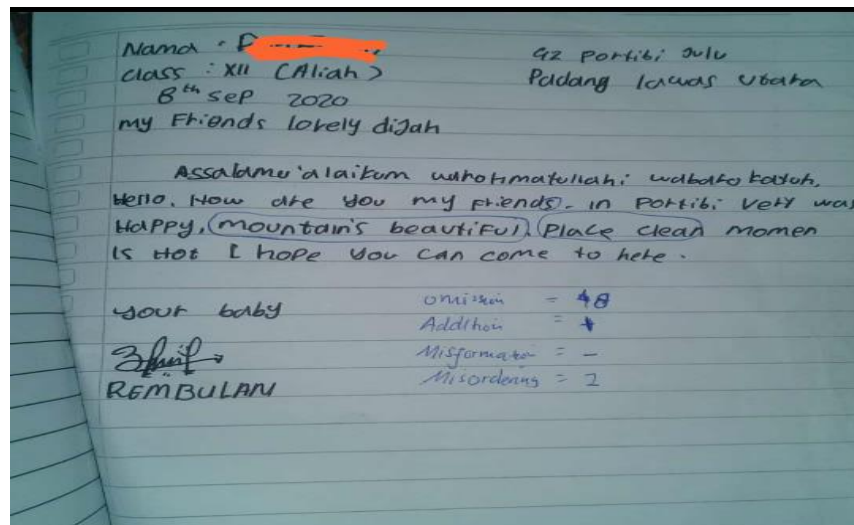 Nama :
class : XII (Aliah)
8th sep 2020
my Friends lovely dijah
Gz Portibi Julu
Padang lawas Utara
Assalamu'alaikum warohmatullahi wabarokatuh,
Hello. How are you my Friends. in Portibi Very was
Happy, mountain's beautiful. Place clean momen
is Hot I hope you can come to here.
your baby
REMBULAN
Omission = 8
Addition =
Misformation = -
Misordering = 2